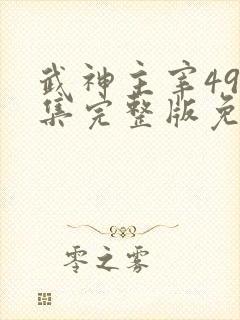 武神主宰49
集完整版免
零之雾